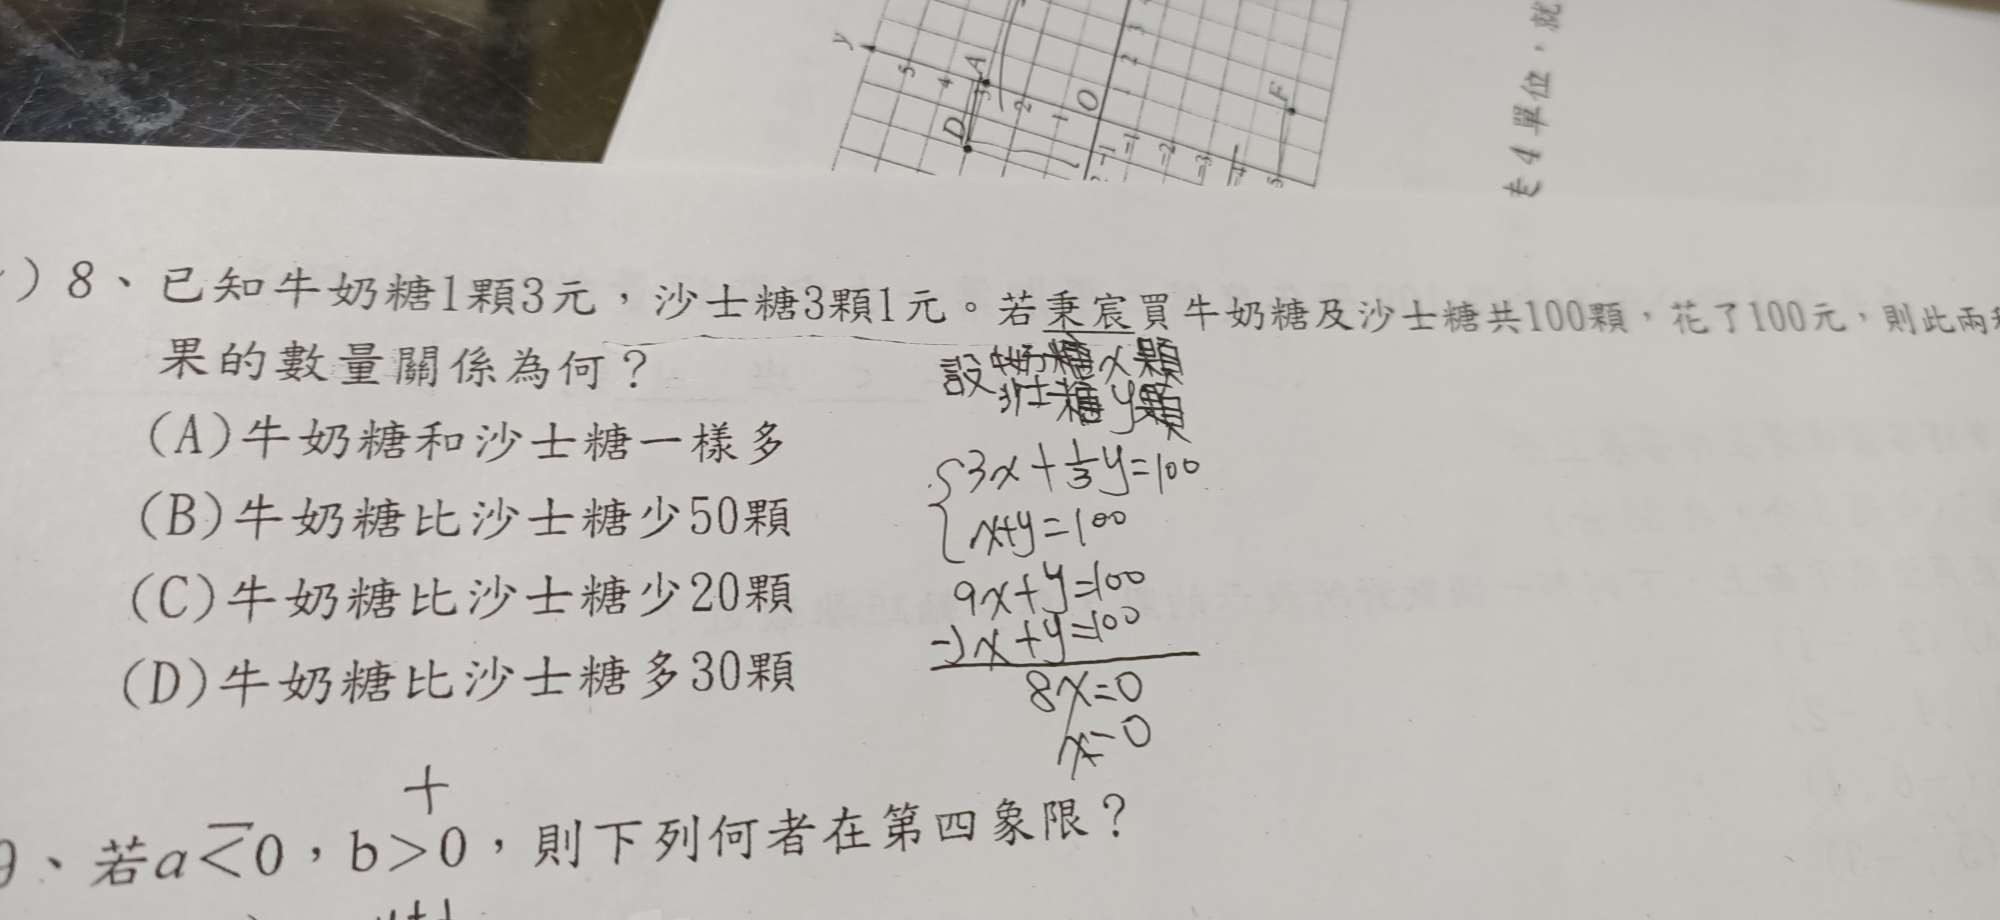 y
5
4
A
3
D
2
1
O
-1
-1
-2
-3
-4
1
2
3
F
走4單位,就
)8、已知牛奶糖1顆3元,沙士糖3顆1元。若秉宸買牛奶糖及沙士糖共100顆,花了100元,則此兩
果的數量關係為何?
(A)牛奶糖和沙士糖一樣多
(B)牛奶糖比沙士糖少50顆
(C)牛奶糖比沙士糖少20顆
(D)牛奶糖比沙士糖多30顆
設 牛奶糖x顆
沙士糖y顆
3x+1/3y=100
x+y=100
9x+y=100
-)x+y=100
8x=0
x=0
- +
9、若a<0,b>0,則下列何者在第四象限?